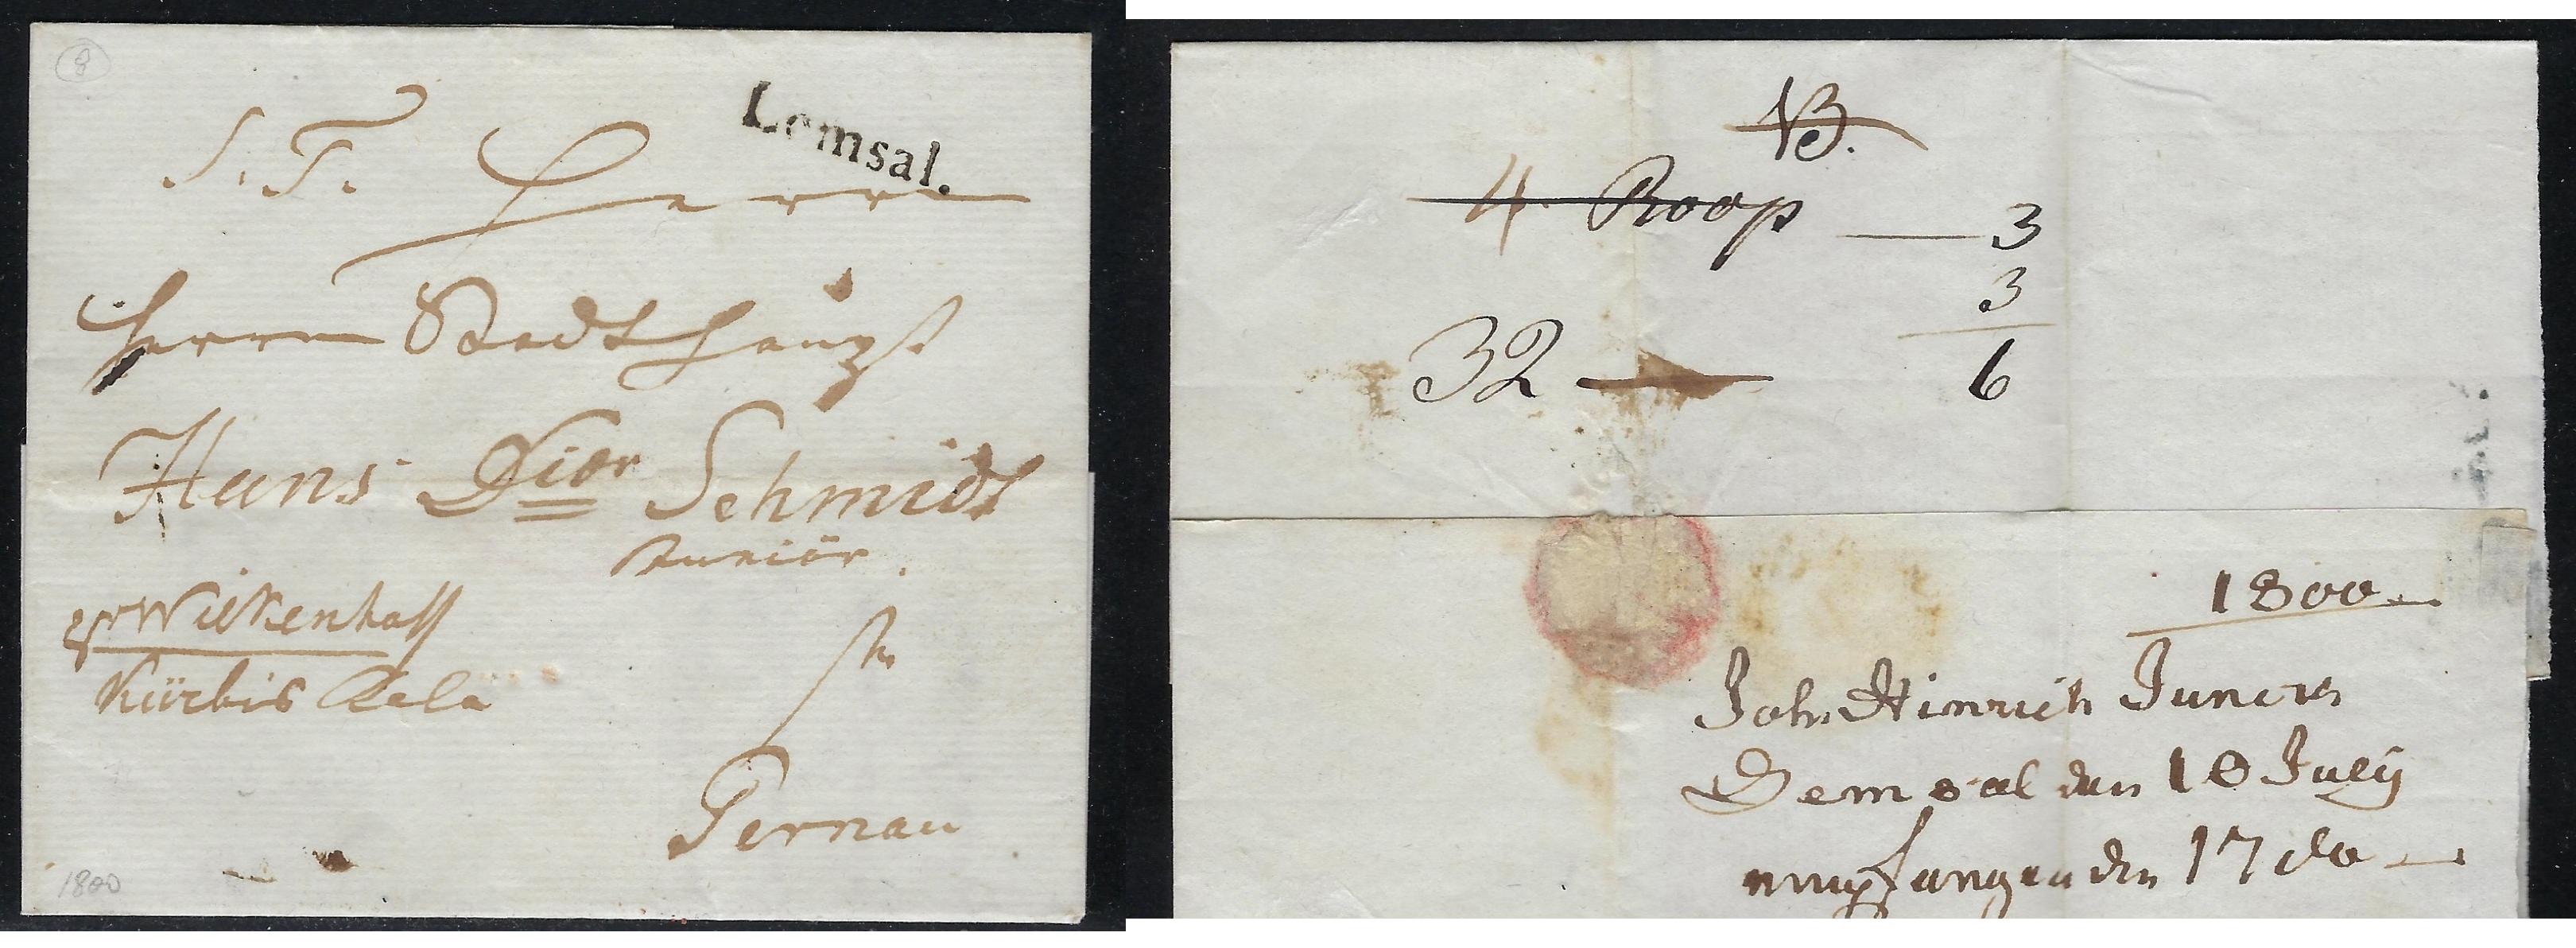 8
Lemsal.
S. T. Herrn
Herrn Stadthaupt
Hans Dior Schmidt
Junior.
Wickenhoff
Kürbis
in
Pernau
1800
NB.
4 Roop — 3
3
32 — 6
1800
Joh. Hinrich
Lemsal den 10 July
empfangen den 17 do